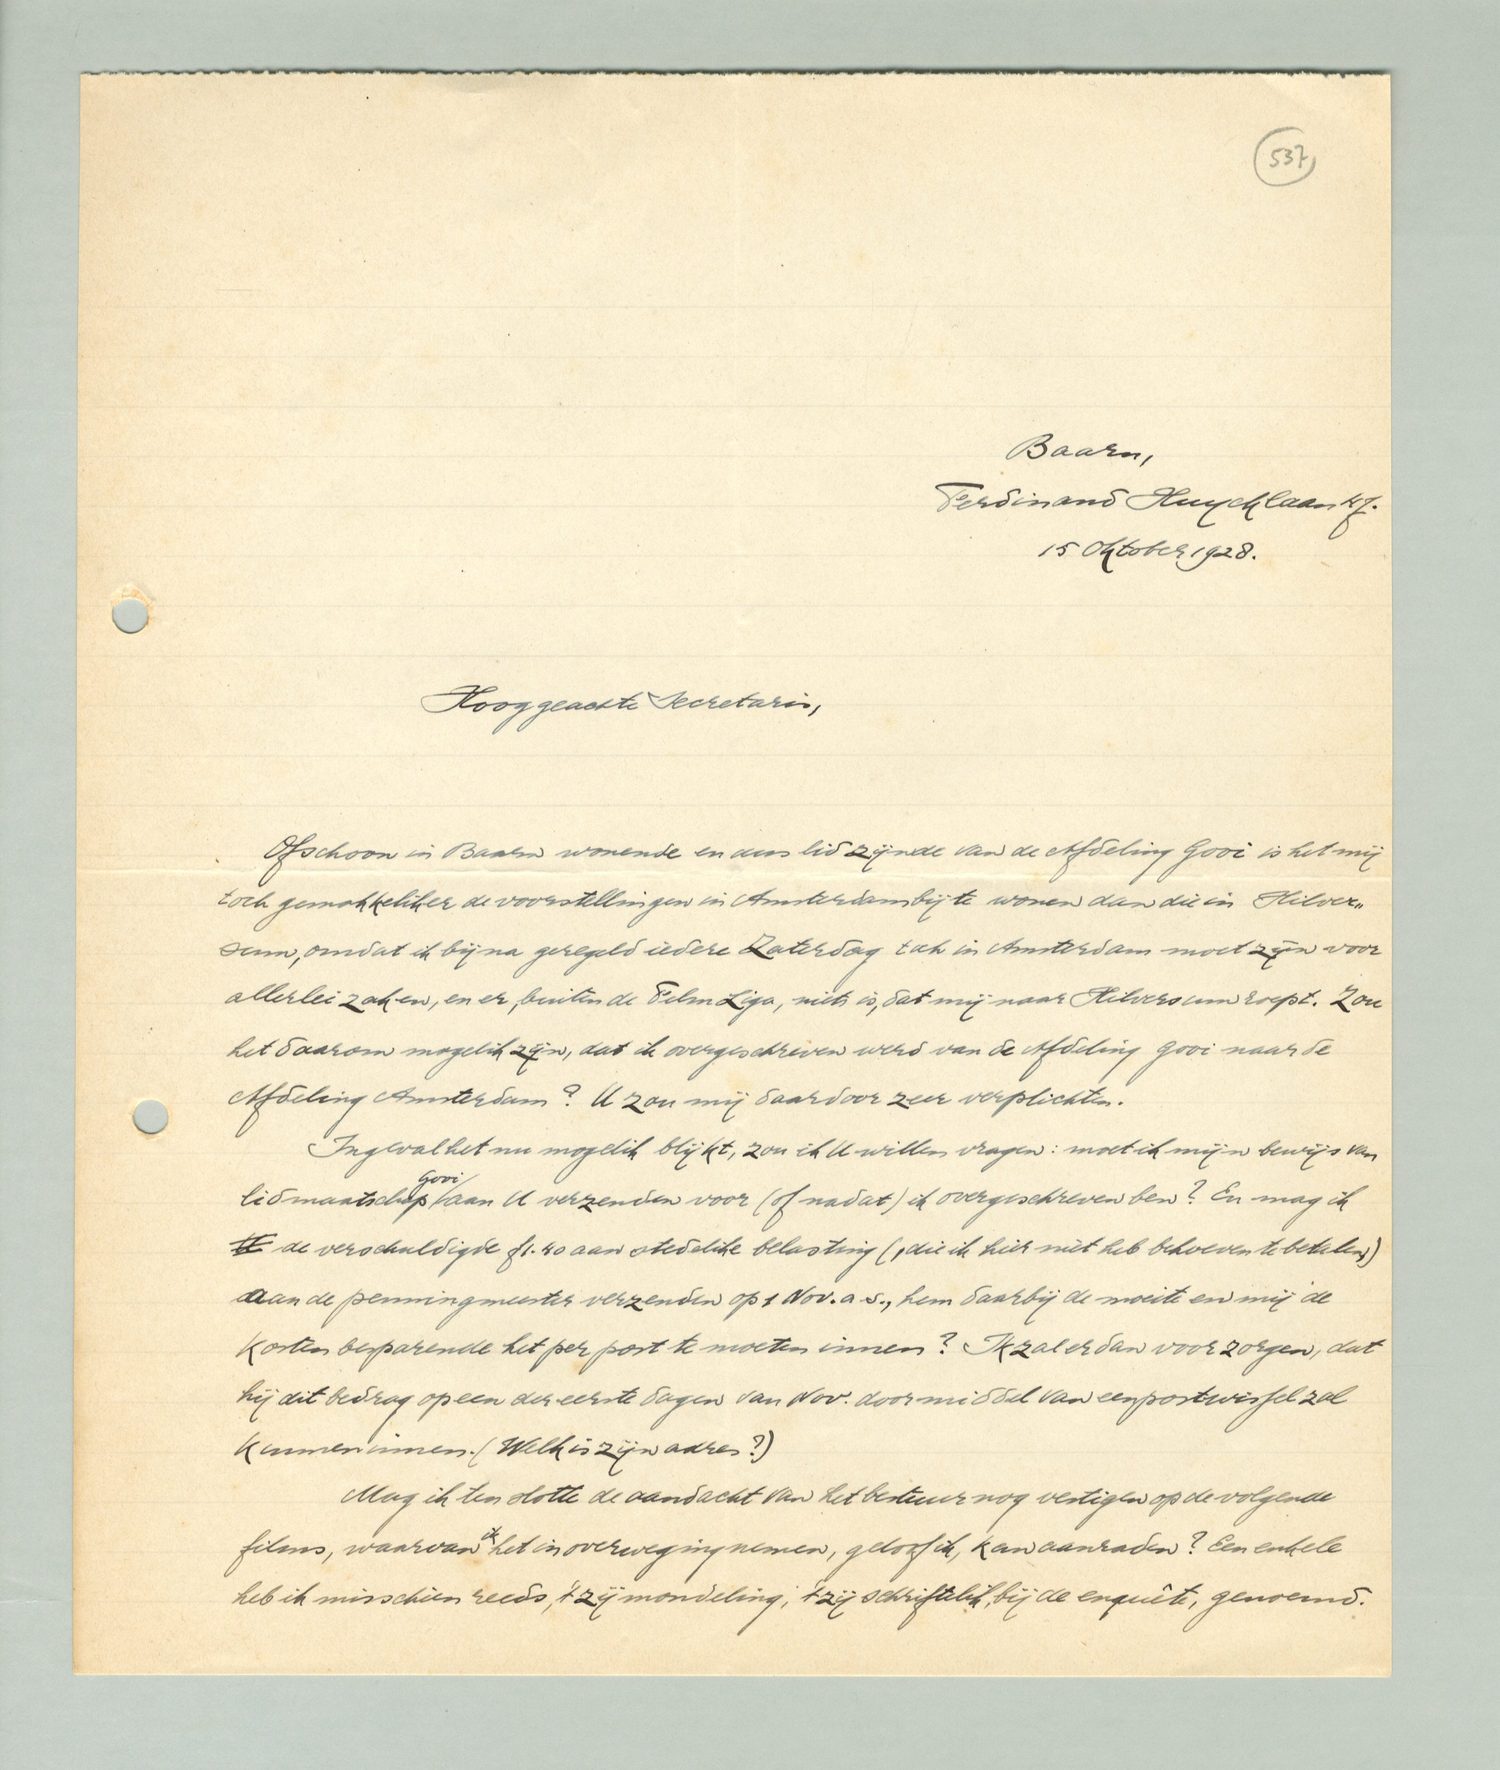 537
Baarn,
Ferdinand Huycklaan 47.
15 Oktober 1928.
Hooggeachte Secretaris,
Ofschoon in Baarn wonende en dus lid zijnde van de Afdeling Gooi is het mij
toch gemakkeliker de voorstellingen in Amsterdam bij te wonen dan die in Hilver„
sum, omdat ik bijna geregeld iedere Zaterdag toch in Amsterdam moet zijn voor
allerlei zaken, en er, buiten de Film Liga, niets is, dat mij naar Hilversum roept. Zou
het daarom mogelik zijn, dat ik overgeschreven werd van de Afdeling Gooi naar de
Afdeling Amsterdam? U zou mij daardoor zeer verplichten.
Ingeval het nu mogelik blijkt, zou ik U willen vragen: moet ik mijn bewijs van
lidmaatschap Gooi aan U verzenden voor (of nadat) ik overgeschreven ben? En mag ik
de verschuldigde f1.40 aan stedelike belasting (, die ik hier niet heb behoeven te betalen,)
aan de penningmeester verzenden op 1 Nov. a.s., hem daarbij de moeite en mij de
kosten besparende het per post te moeten innen? Ik zal er dan voor zorgen, dat
hij dit bedrag op een der eerste dagen van Nov. door middel van een postwissel zal
kunnen innen. (Welk is zijn adres?)
Mag ik ten slotte de aandacht van het bestuur nog vestigen op de volgende
films, waarvan ik het in overweging nemen, geloof ik, kan aanraden? Een enkele
heb ik misschien reeds, 't zij mondeling, 't zij schriftelik, bij de enquête, genoemd.